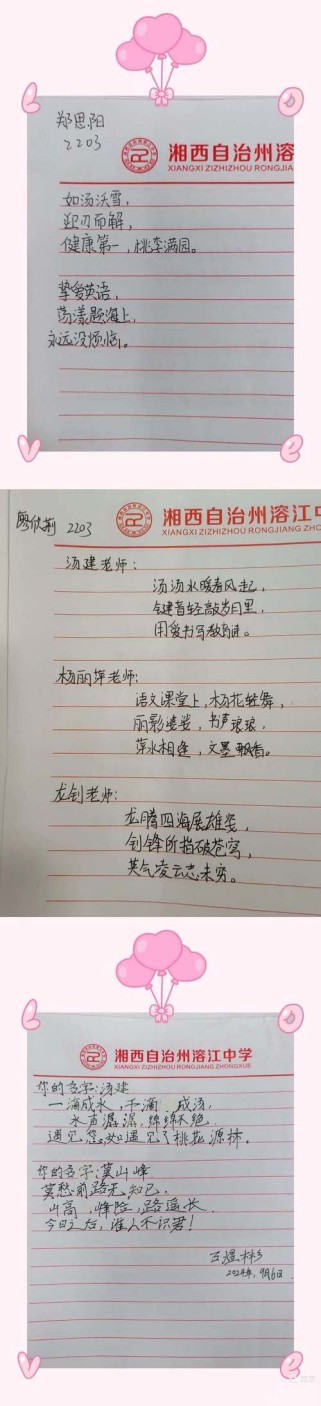 郑思阳
2203
湘西自治州溶
XIANGXI ZIZHIZHOU RONGJIA
如汤沃雪，
迎刃而解，
健康第一，桃李满园。
挚爱英语，
荡漾题海上，
永远没烦恼。
L
O
V
e
廖欣莉 2203
湘西自治州溶江中
XIANGXI ZIZHIZHOU RONGJIANG ZHO
汤建老师：
汤汤水暖春风起，
键音轻敲岁月里，
用爱书写教育谜。
杨丽萍老师：
语文课堂上，杨花轻舞，
丽影婆娑，书声琅琅，
萍水相逢，文墨飘香。
龙钊老师：
龙腾四海展雄姿，
钊锋所指破苍穹，
英气凌云志未穷。
L
O
湘西自治州溶江中学
XIANGXI ZIZHIZHOU RONGJIANG ZHONGXUE
你的名字：汤建
一滴成水，千滴成汤，
水声潺潺，绵绵不绝.
遇见您如遇见了桃花源林.
你的名字：莫山峰
莫愁前路无知己.
山高，峰险，路遥长.
今日之后，谁人不识君！
2024年，9月6日.
V
e